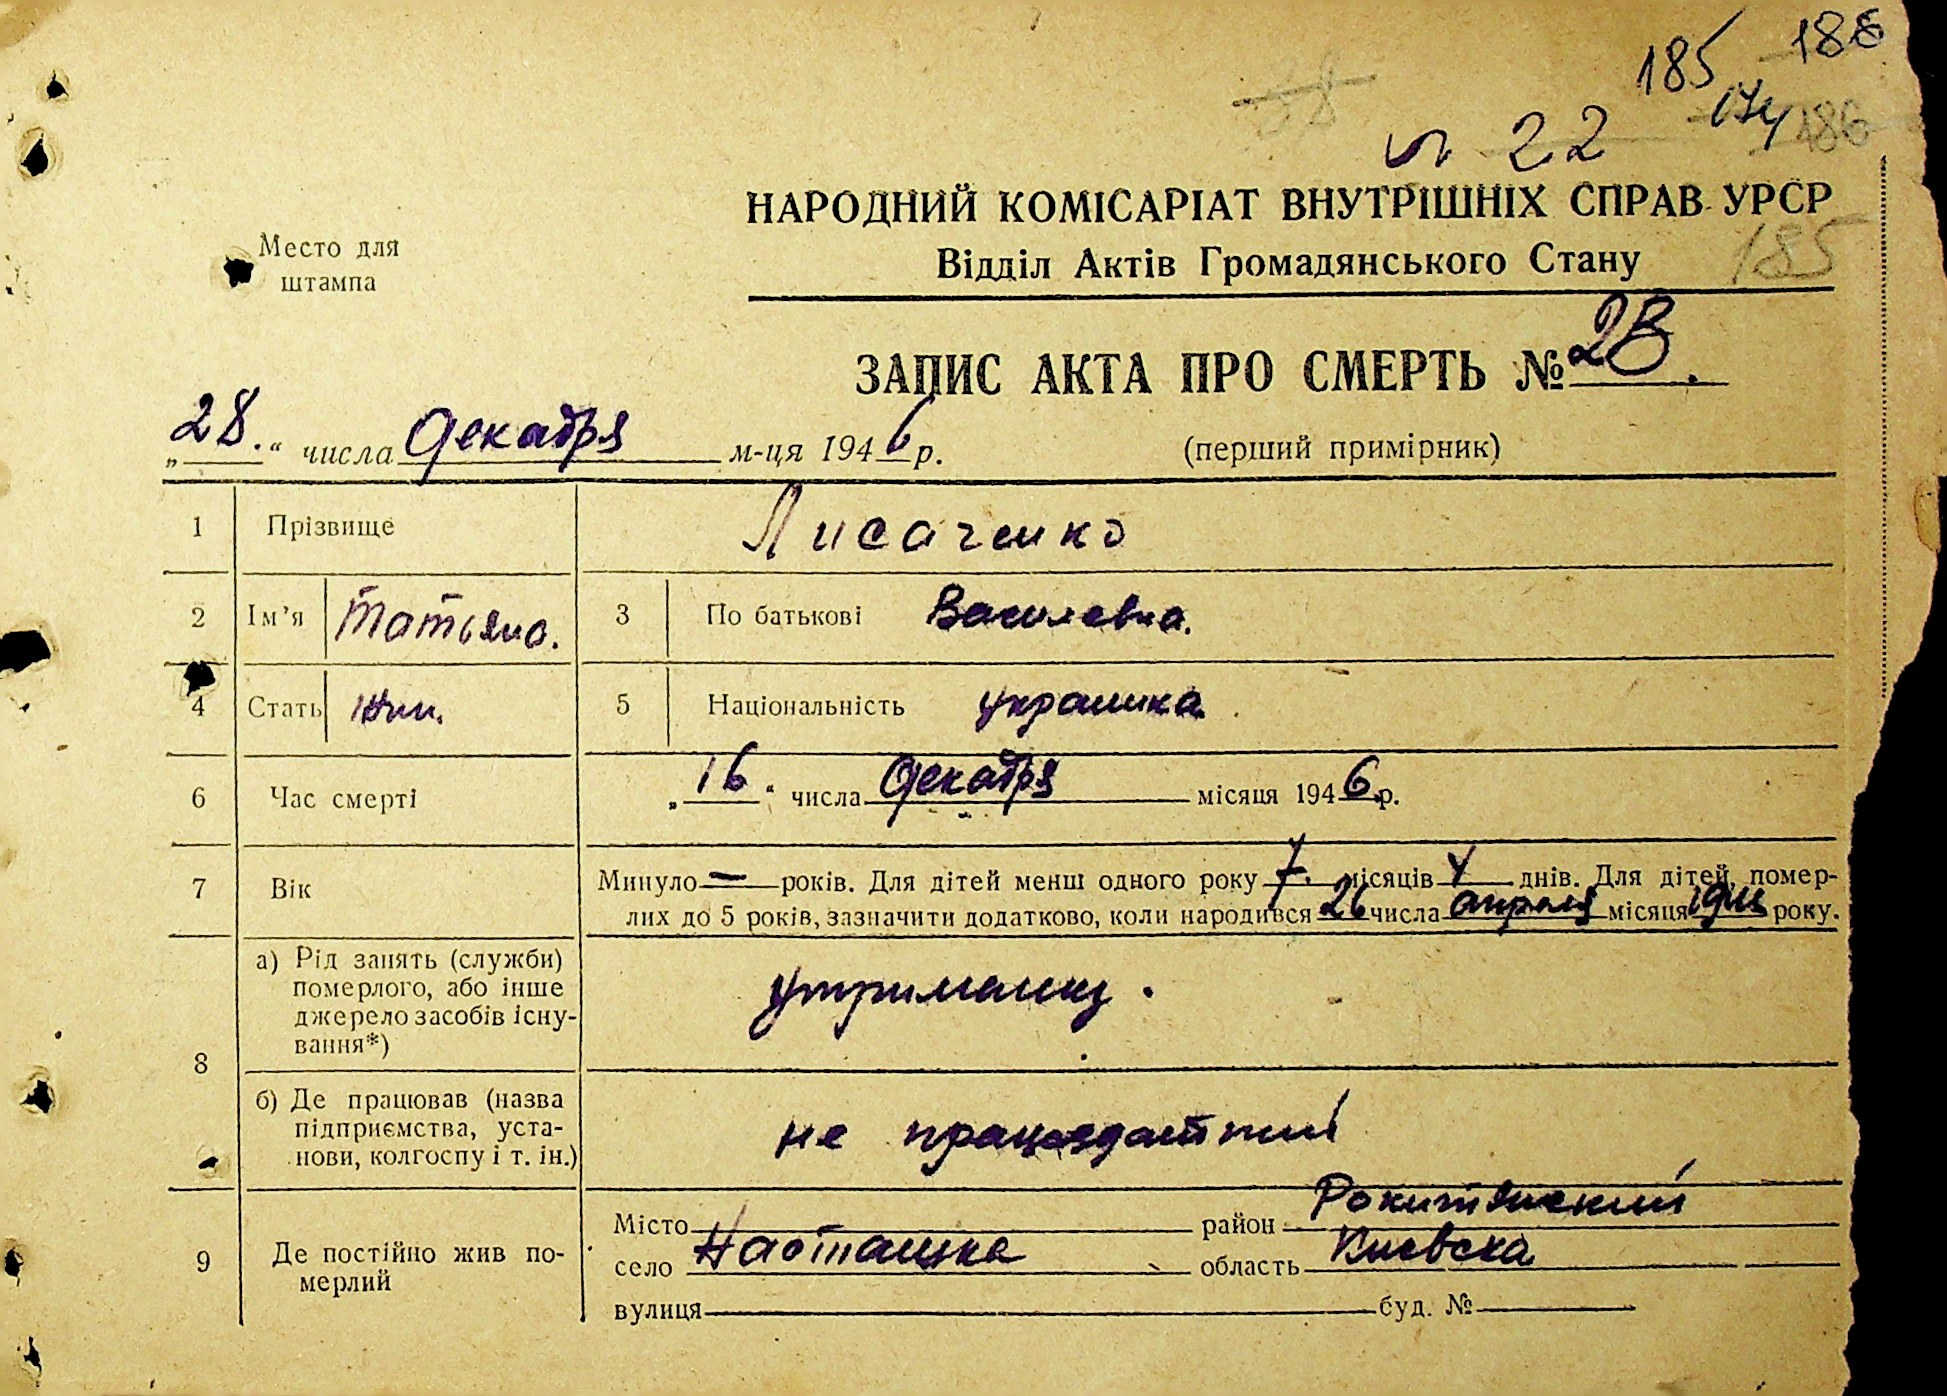 185 186
174 186
№ 22
НАРОДНИЙ КОМІСАРІАТ ВНУТРІШНІХ СПРАВ УРСР
185
Відділ Актів Громадянського Стану
Место для
штампа
ЗАПИС АКТА ПРО СМЕРТЬ № 28.
„28.“ числа декабря м-ця 1946 р.
(перший примірник)
1 Прізвище Лисаченко
2 Ім'я Татьяна. 3 По батькові Василевна.
4 Стать жін. 5 Національність украинка.
6 Час смерті „16“ числа декабря місяця 1946 р.
7 Вік Минуло — років. Для дітей менш одного року 7. місяців днів. Для дітей, помер-
лих до 5 років, зазначити додатково, коли народився 26 числа апреля місяця року.
8 а) Рід занять (служби)
померлого, або інше
джерело засобів існу-
вання*)
утриманку.
б) Де працював (назва
підприємства, уста-
нови, колгоспу і т. ін.)
не працездатний
9 Де постійно жив по-
мерлий
Місто район Рокитянский
село Насташка область Киевска
вулиця буд. №